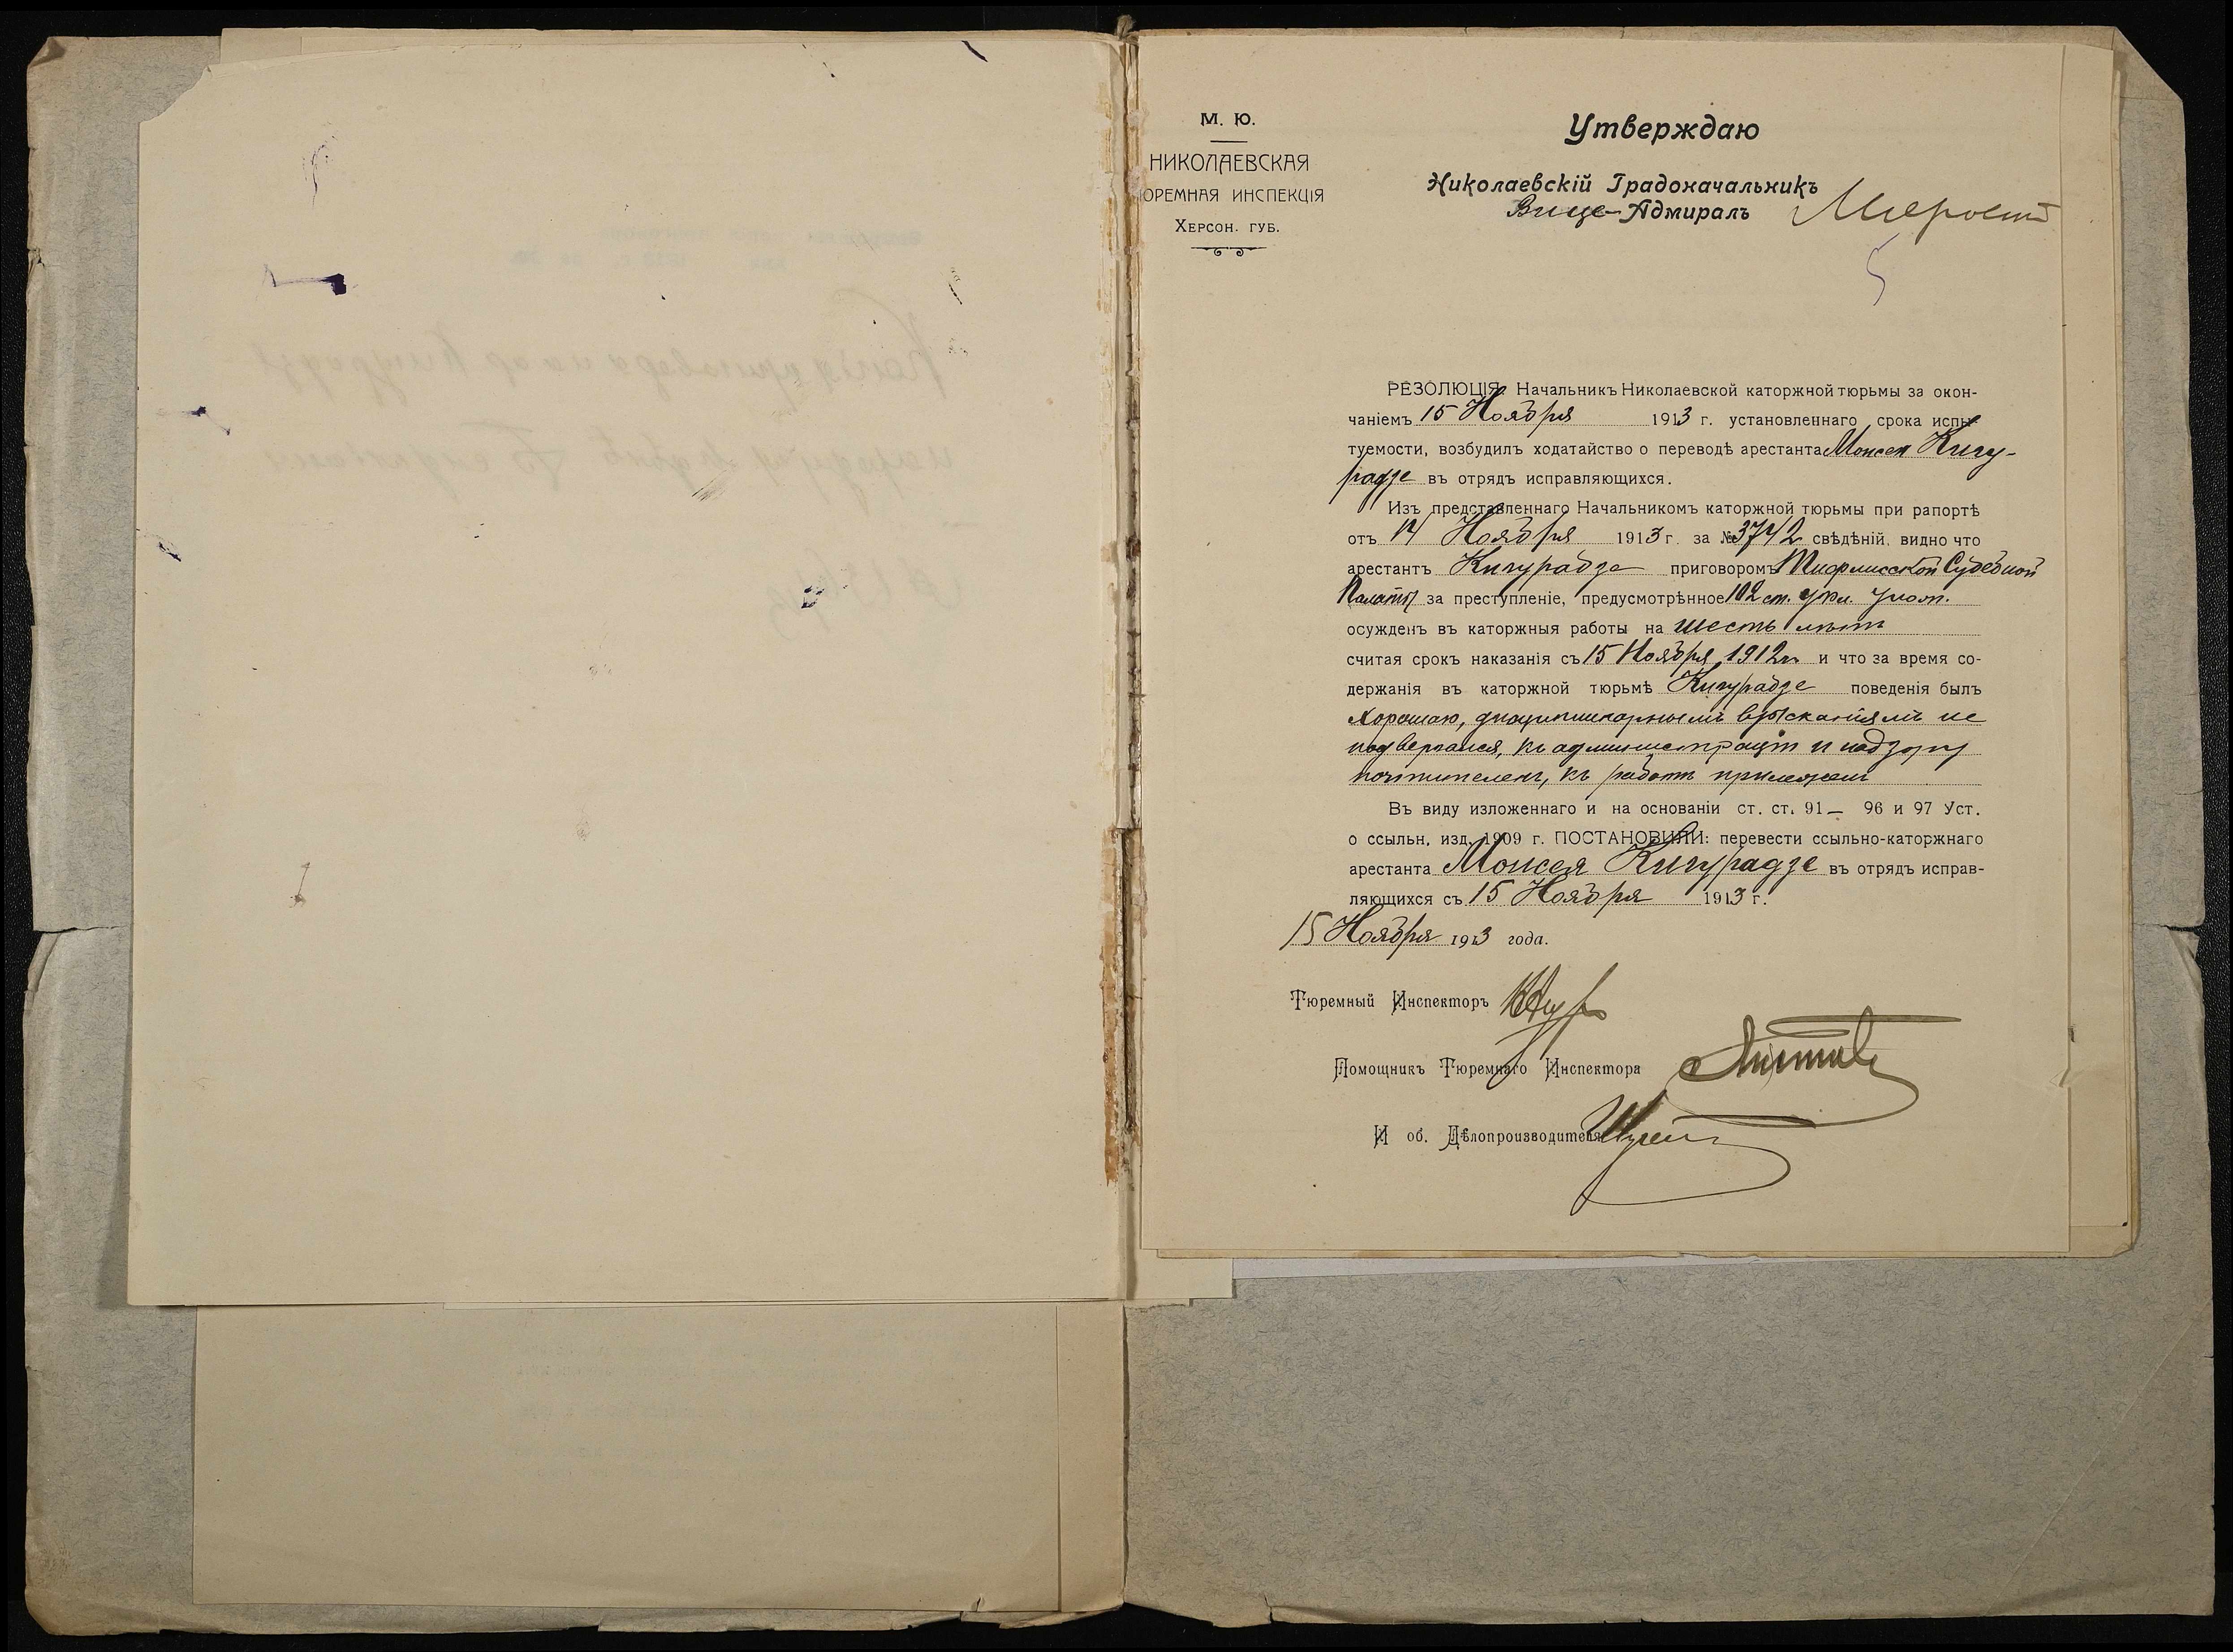 М. Ю.
НИКОЛАЕВСКАЯ
ЮРЕМНАЯ ИНСПЕКЦІЯ
ХЕРСОН. ГУБ.
Утверждаю
Николаевскій Градоначальникъ
Вице-Адмиралъ
5
РЕЗОЛЮЦІЯ. Начальникъ Николаевской каторжной тюрьмы за окон-
чаніемъ 15 Ноября 1913 г. установленнаго срока испы-
туемости, возбудилъ ходатайство о переводѣ арестанта Моисея Кигу-
радзе въ отрядъ исправляющихся.
Изъ представленнаго Начальникомъ каторжной тюрьмы при рапортѣ
отъ 14 Ноября 1913 г. за № 3742 свѣдѣній, видно что
арестантъ Кигурадзе приговоромъ Тифлисской Судебной
Палаты за преступленіе, предусмотрѣнное 102 ст. Угл. Улож.
осужденъ въ каторжныя работы на шесть лѣтъ
считая срокъ наказанія съ 15 Ноября 1912 г. и что за время со-
держанія въ каторжной тюрьмѣ Кигурадзе поведенія былъ
хорошаго, дисциплинарнымъ взысканіямъ не
подвергался, къ администраціи и надзору
почтителенъ, къ работѣ прилеженъ
Въ виду изложеннаго и на основаніи ст. ст. 91 — 96 и 97 Уст.
о ссыльн. изд. 1909 г. ПОСТАНОВИЛИ: перевести ссыльно-каторжнаго
арестанта Моисея Кигурадзе въ отрядъ исправ-
ляющихся съ 15 Ноября 1913 г.
15 Ноября 1913 года.
Тюремный Инспекторъ
Помощникъ Тюремнаго Инспектора
И об. Дѣлопроизводителя